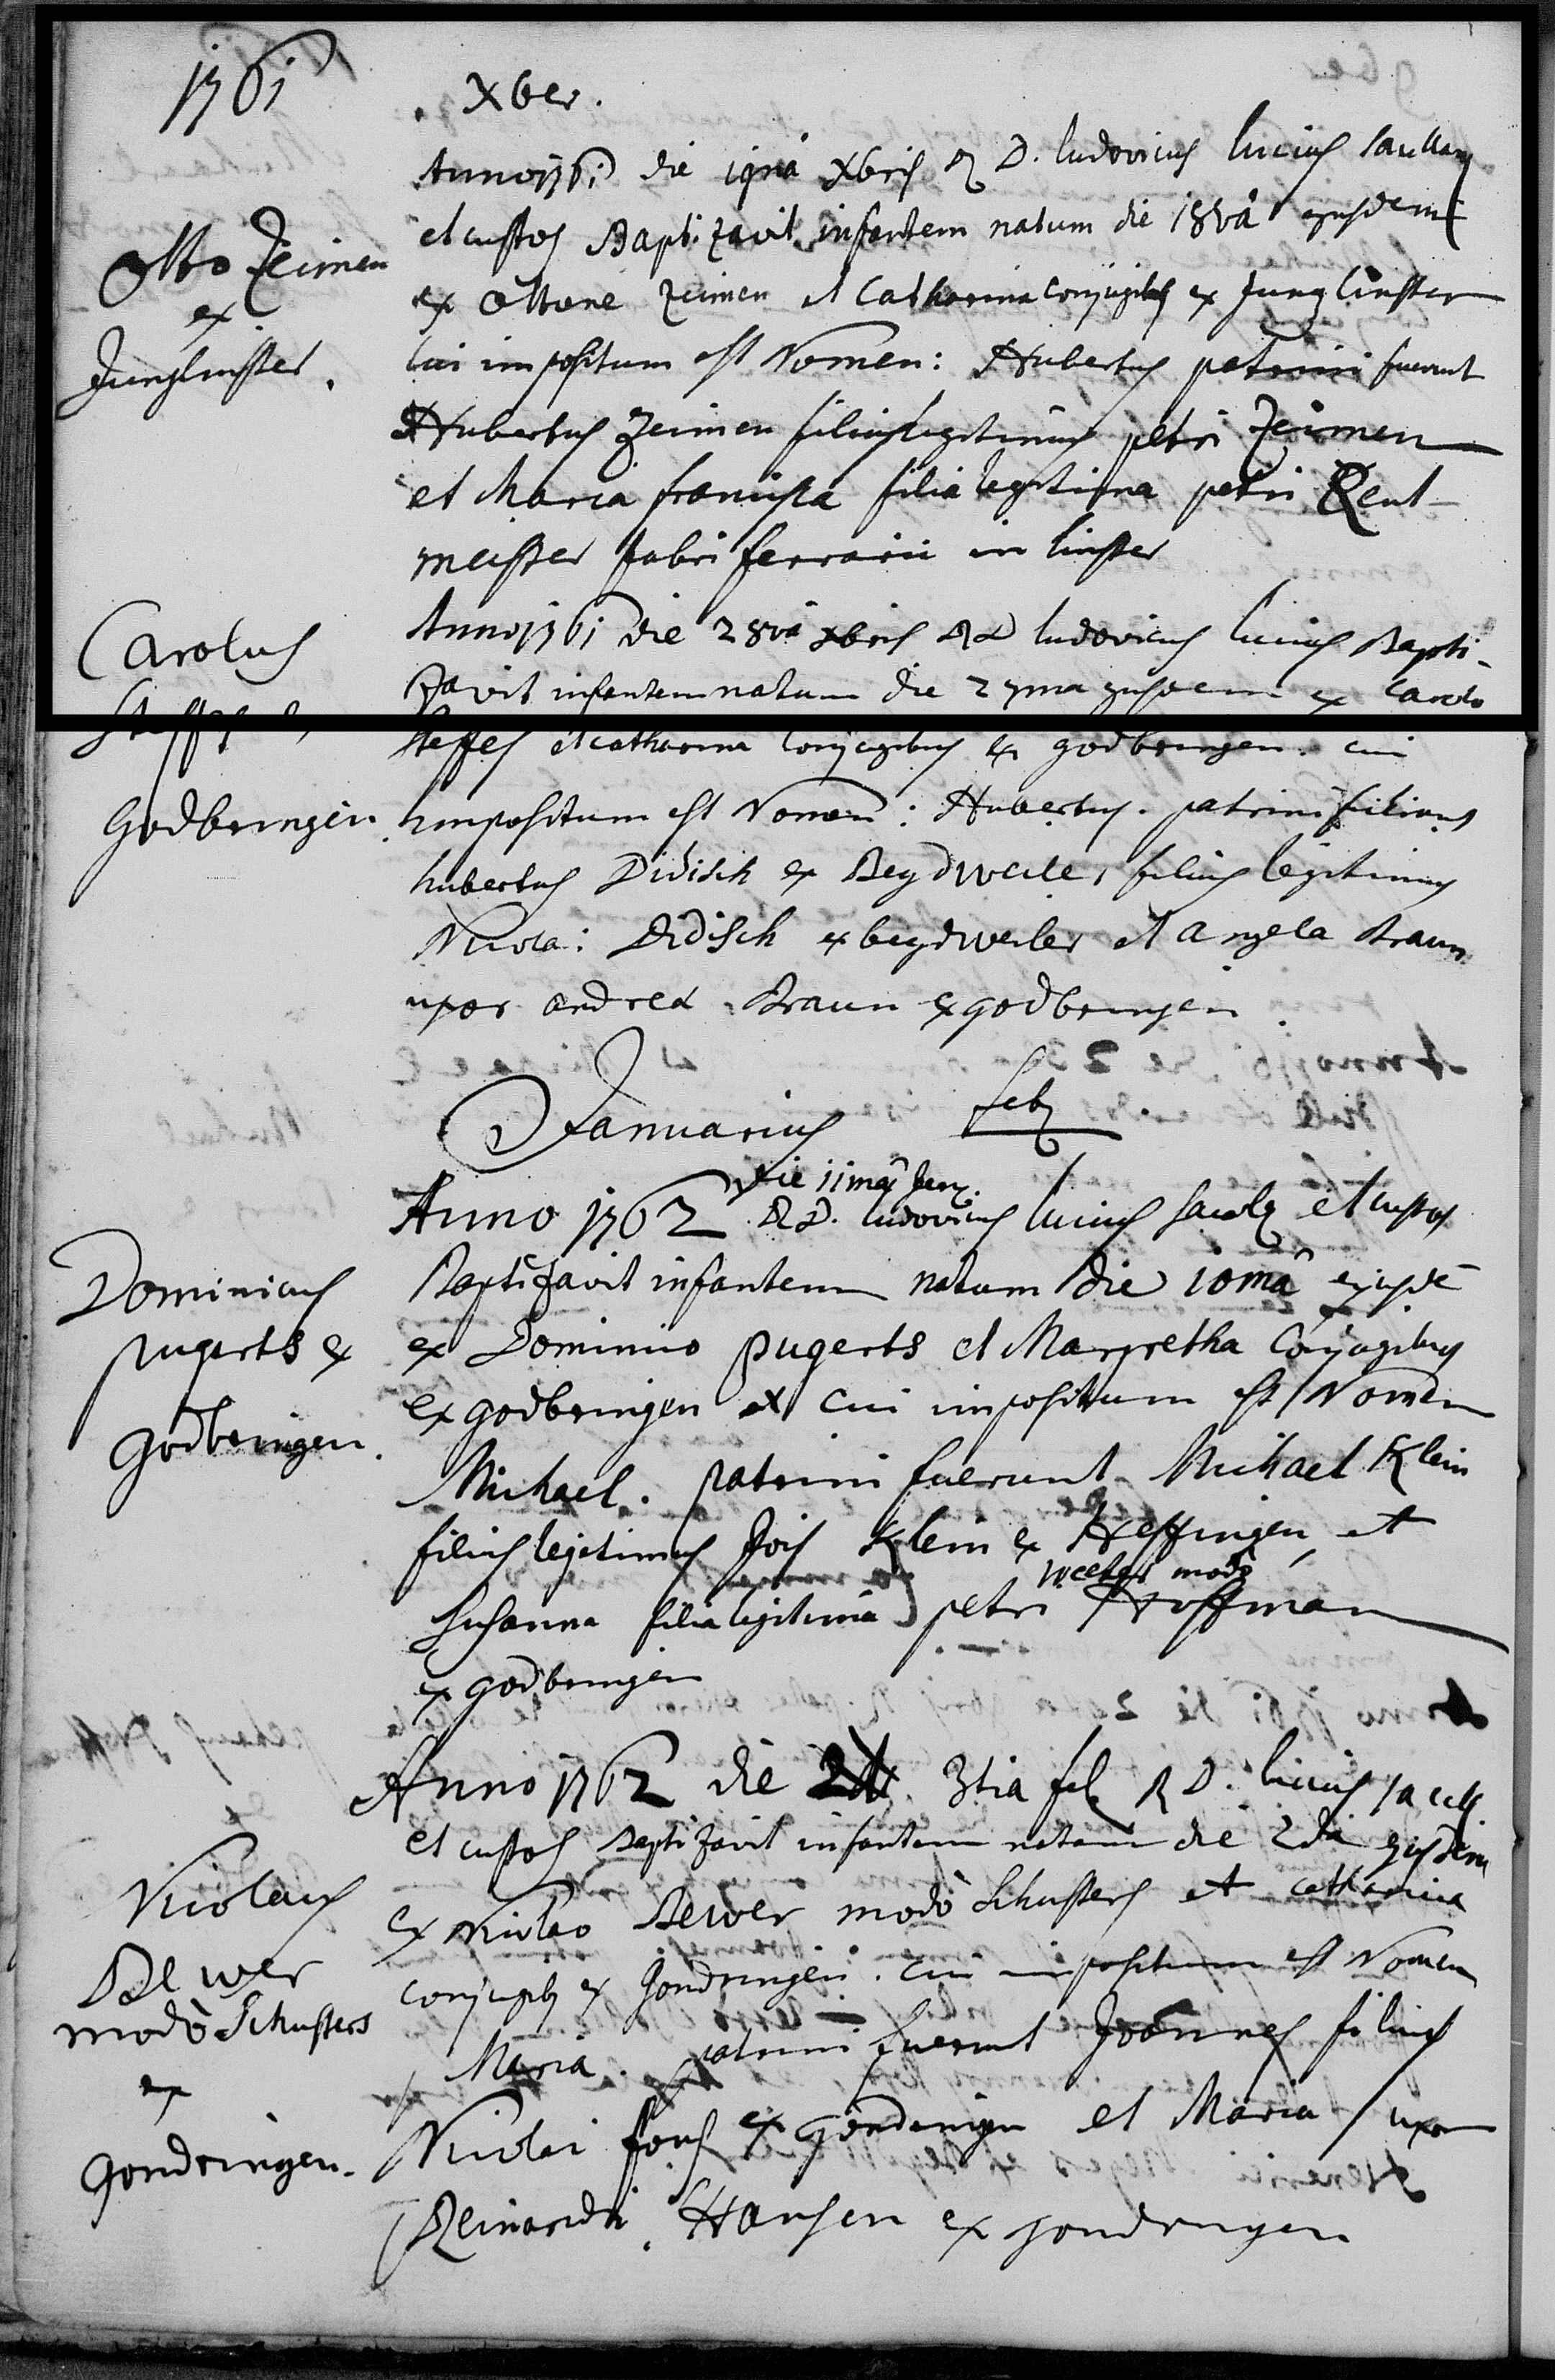 1761
Xber.
Anno 1761 die 19nâ Xbris R D. ludovicus lucius sacellanus
et custos Baptizavit infantem natum die 18vâ ejusdem
Otto Zeimen
ex
Junglinster.
ex Ottone Zeimen et Catharina conjugibus ex Junglinster
cui impositum est Nomen: Hubertus patrini fuerunt
Hubertus Zeimen filius legitimus petri Zeimen
et Maria francisca filia legitima petri Rent-
meister fabri ferrarii in linster
Carolus
Steffes
Godbringen
Anno 1761 die 28vâ Xbris RD ludovicus lucius Bapti-
zavit infantem natum die 27ma ejusdem ex Carolo
steffes et catharina conjugibus ex godbringen. cui
impositum est Nomen: Hubertus. patrini
hubertus Didisch ex Beydweiler filius legitimus
Nicolai Didisch ex beydweiler et angela Braun
uxor andreæ Braun ex godbringen
Januarius feb
die 11mâ
Anno 1762 RD. ludovicus lucius et custos
Dominicus
pugerts ex
Godbringen.
Baptizavit infantem natum die 10mâ ejusdē
ex Dominico pugerts et Margretha Conjugibus
ex godbringen cui impositum est Nomen
Michael. patrini fuerunt Michael Klein
filius legitimus Jois Klein ex Heffingen et
modò
Susanna filia legitima petri Hoffman
ex godbringen
Anno 1762 die 3tia feb R D. lucius sacell
et custos Baptizavit infantem natam die 2dâ ejusdem
Nicolaus
Bewer
modò Schusters
ex
Gondringen.
ex Nicolao Bewer modò Schusters et catharina
conjugib ex Gondringen. cui impositum est Nomen
Maria. patrini fuerunt Joannes filius
Nicolai ex Gondringen et Maria uxor
Reinardi Hansen ex gondringen